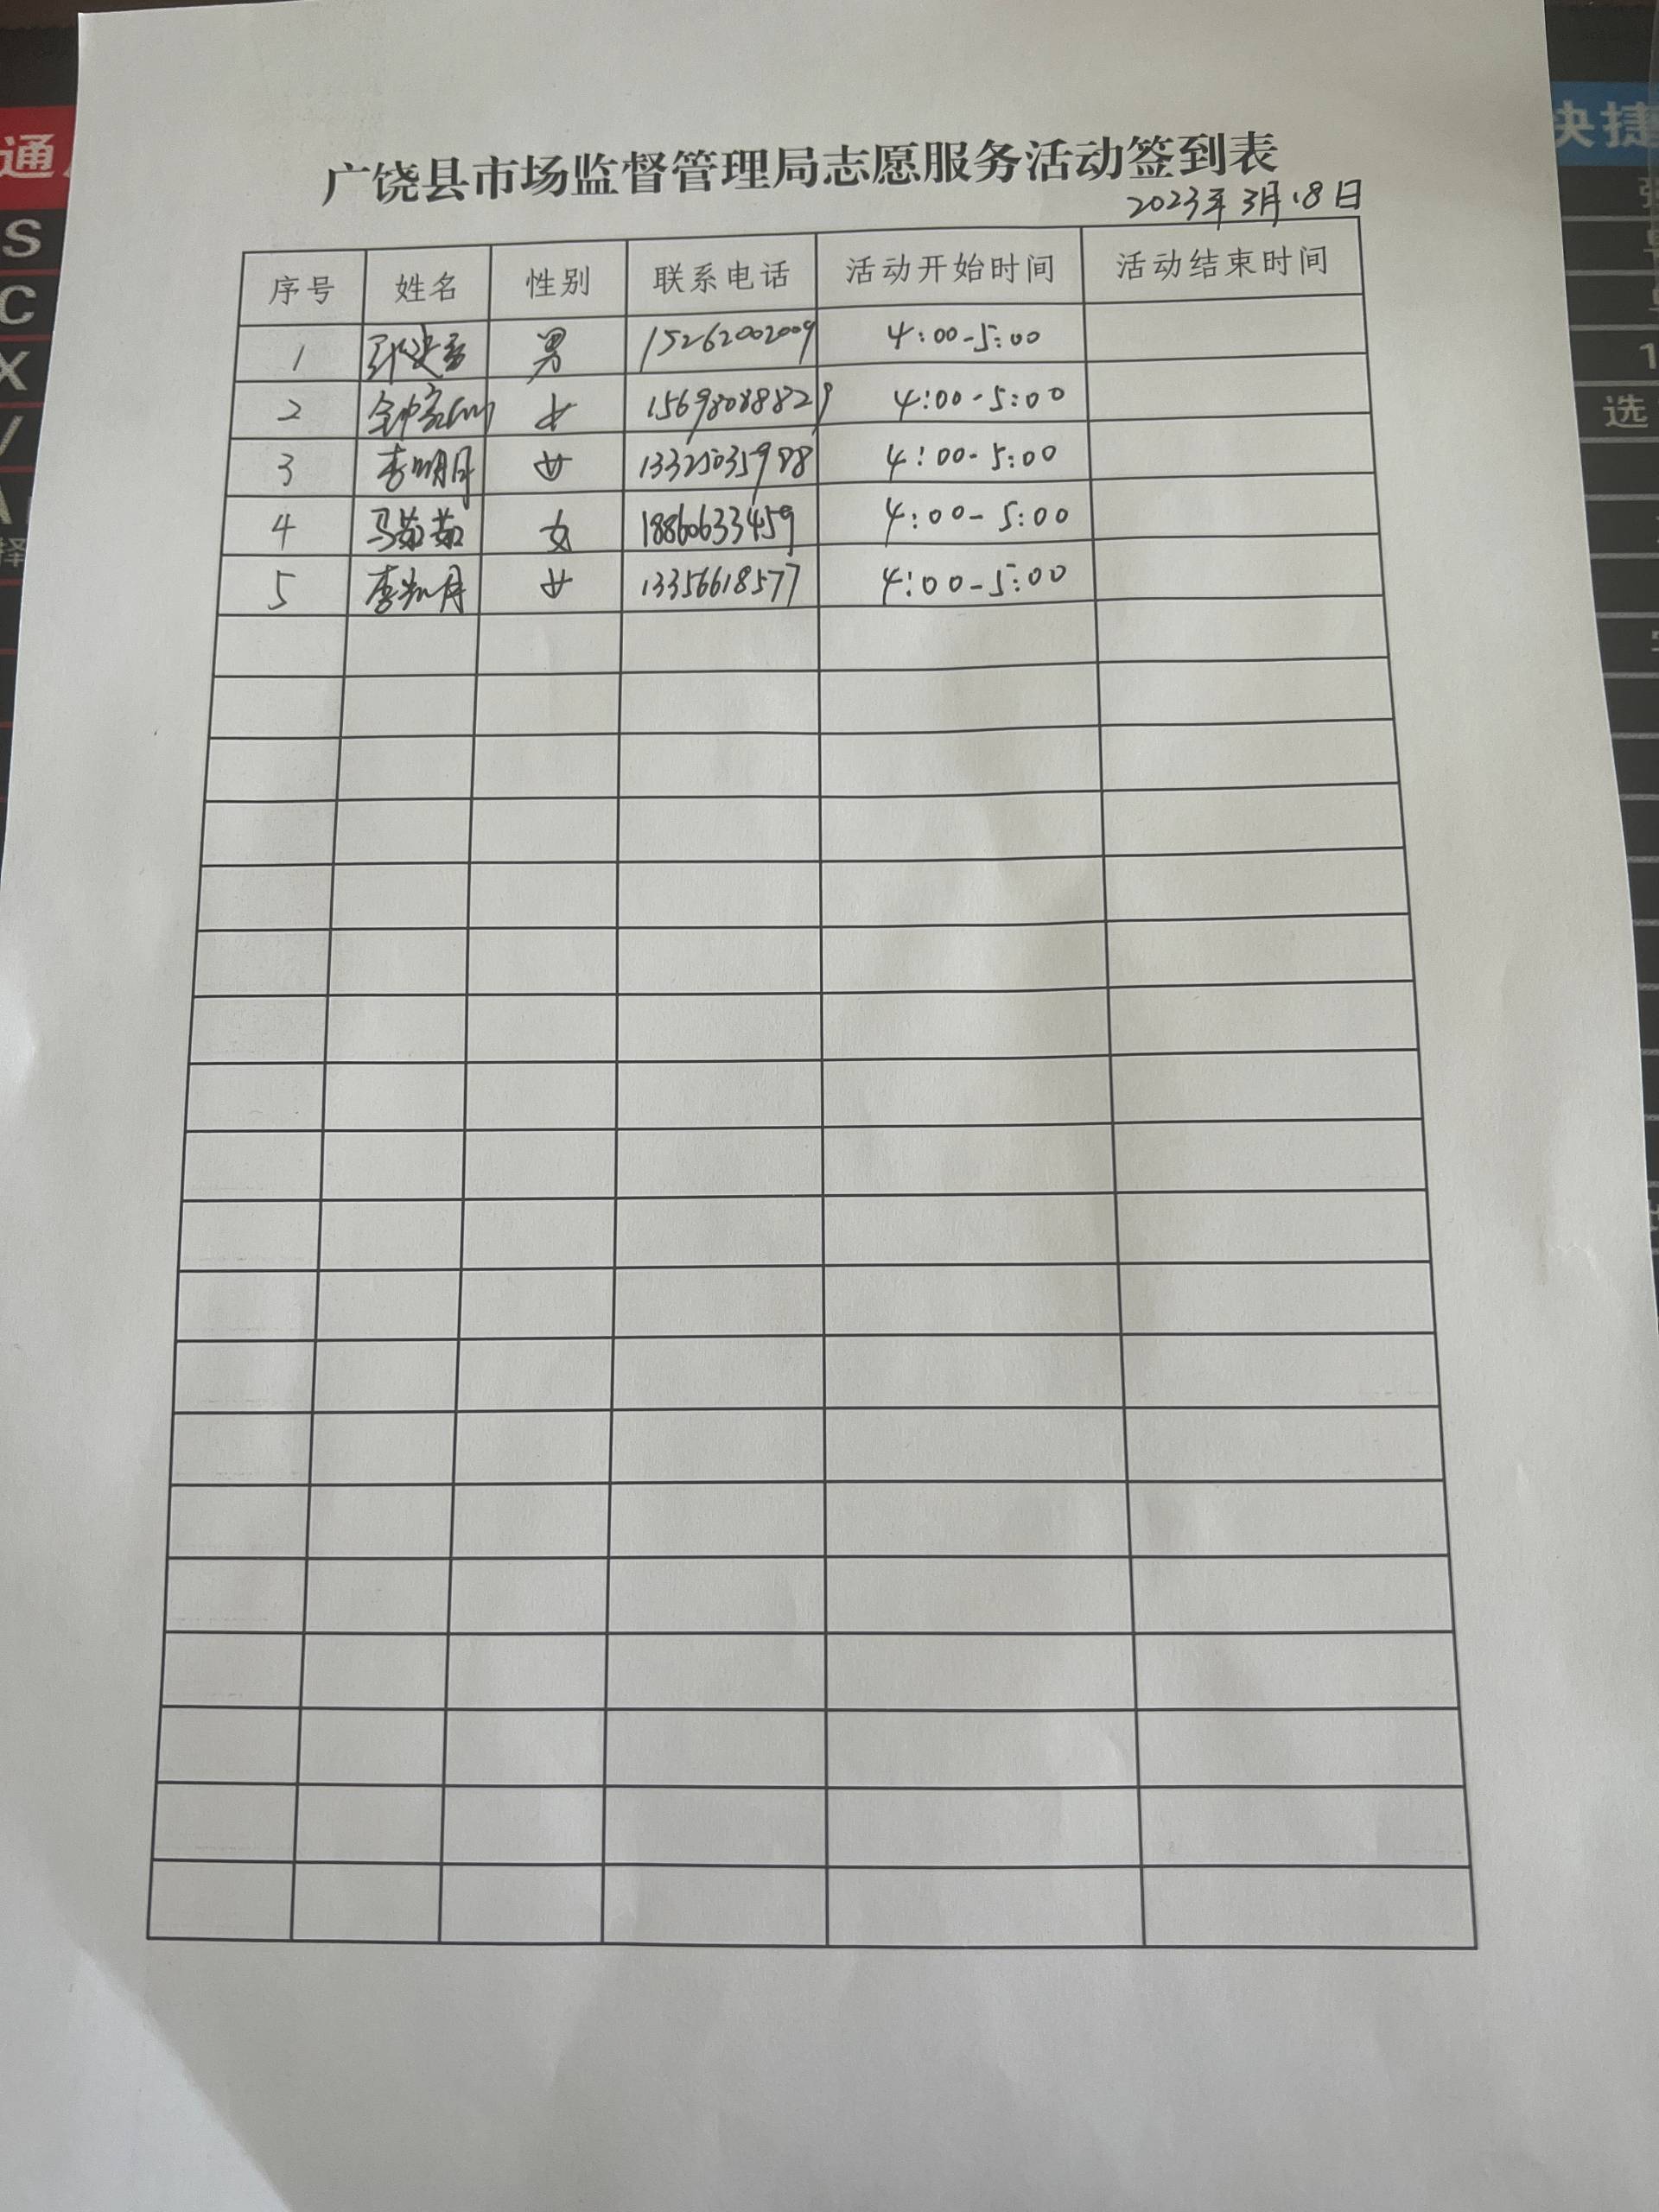 通
快捷
S
C
X
选
择
广饶县市场监督管理局志愿服务活动签到表
2023年3月18日
序号 姓名 性别 联系电话 活动开始时间 活动结束时间
1 男 15262002009 4:00-5:00
2 女 15698088829 4:00-5:00
3 李明月 女 13325035988 4:00-5:00
4 马茹茹 女 18860633459 4:00-5:00
5 女 13356618577 4:00-5:00